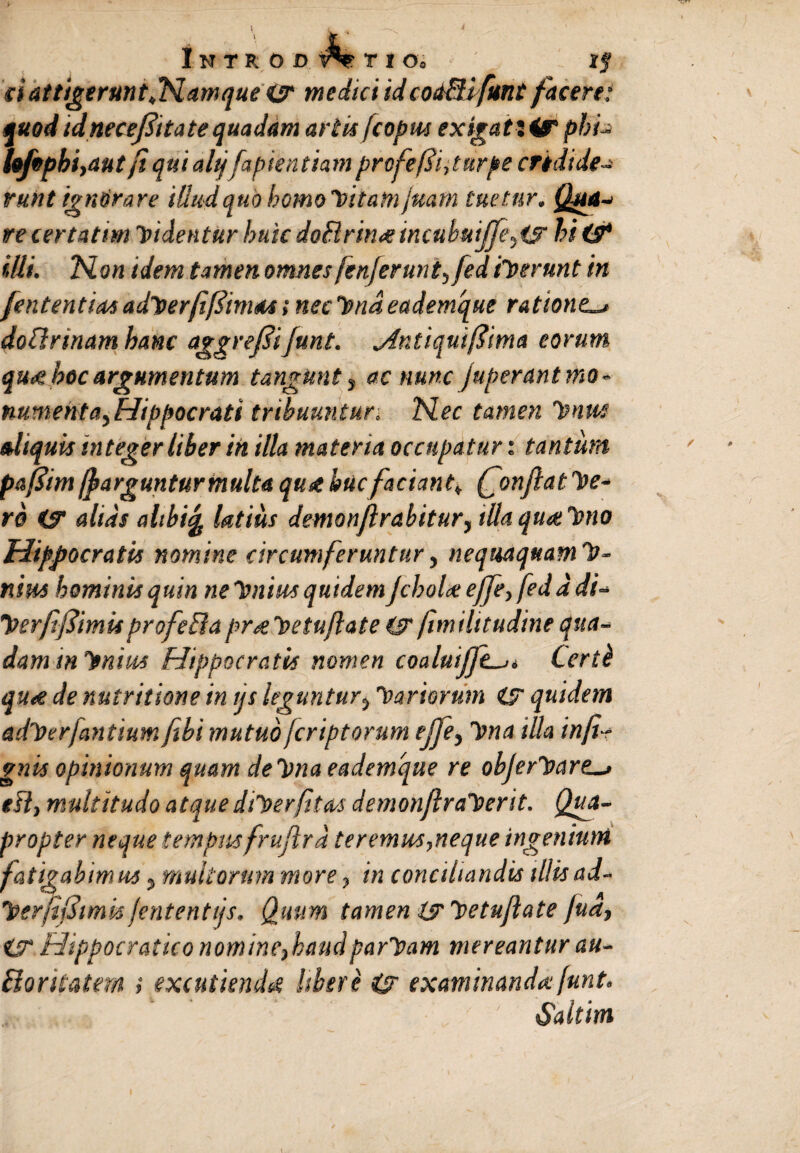 INTRODVCTIO. 15
ci attigerunt. Namque & medici id coacti sunt facere:
quod id necessitate quadam artis scopus exigat: & phi-
losophi, aut si qui alij sapientiam professi, turpe credide-
runt ignorare illud quo homo vitam suam tuetur. Qua-
re certatim videntur huic doctrinæ incubuisse, & hi &
illi. Non idem tamen omnes senserunt, sed iverunt in
sententias adversissimas; nec vnâ eademque ratione
doctrinam hanc aggressi sunt. Antiquissima eorum
quæ hoc argumentum tangunt, ac nunc superant mo-
numenta, Hippocrati tribuuntur. Nec tamen vnus
aliquis integer liber in illa materia occupatur: tantùm
passim sparguntur multa quæ huc faciant. Constat ve-
rò & aliàs alibíq; latiùs demonstrabitur, illa quæ vno
Hippocratis nomine circumferuntur, nequaquam v-
nius hominis quin ne vnius quidem scholæ esse, sed à di-
versissimis profecta præ vetustate & similitudine qua-
dam in vnius Hippocratis nomen coaluisse. Certè
quæ de nutritione in ijs leguntur, variorùm & quidem
adversantium sibi mutuò scriptorum esse, vna illa insi-
gnis opinionum quam de vna eademque re observare
est, multitudo atque diversitas demonstraverit. Qua-
propter neque tempus frustrà teremus, neque ingenium
fatigabimus, multorum more, in conciliandis illis ad-
versissimis sententijs. Quum tamen & vetustate suâ,
& Hippocratico nomine, haud parvam mereantur au-
ctoritatem; excutiendæ liberè & examinandæ sunt.
Saltim